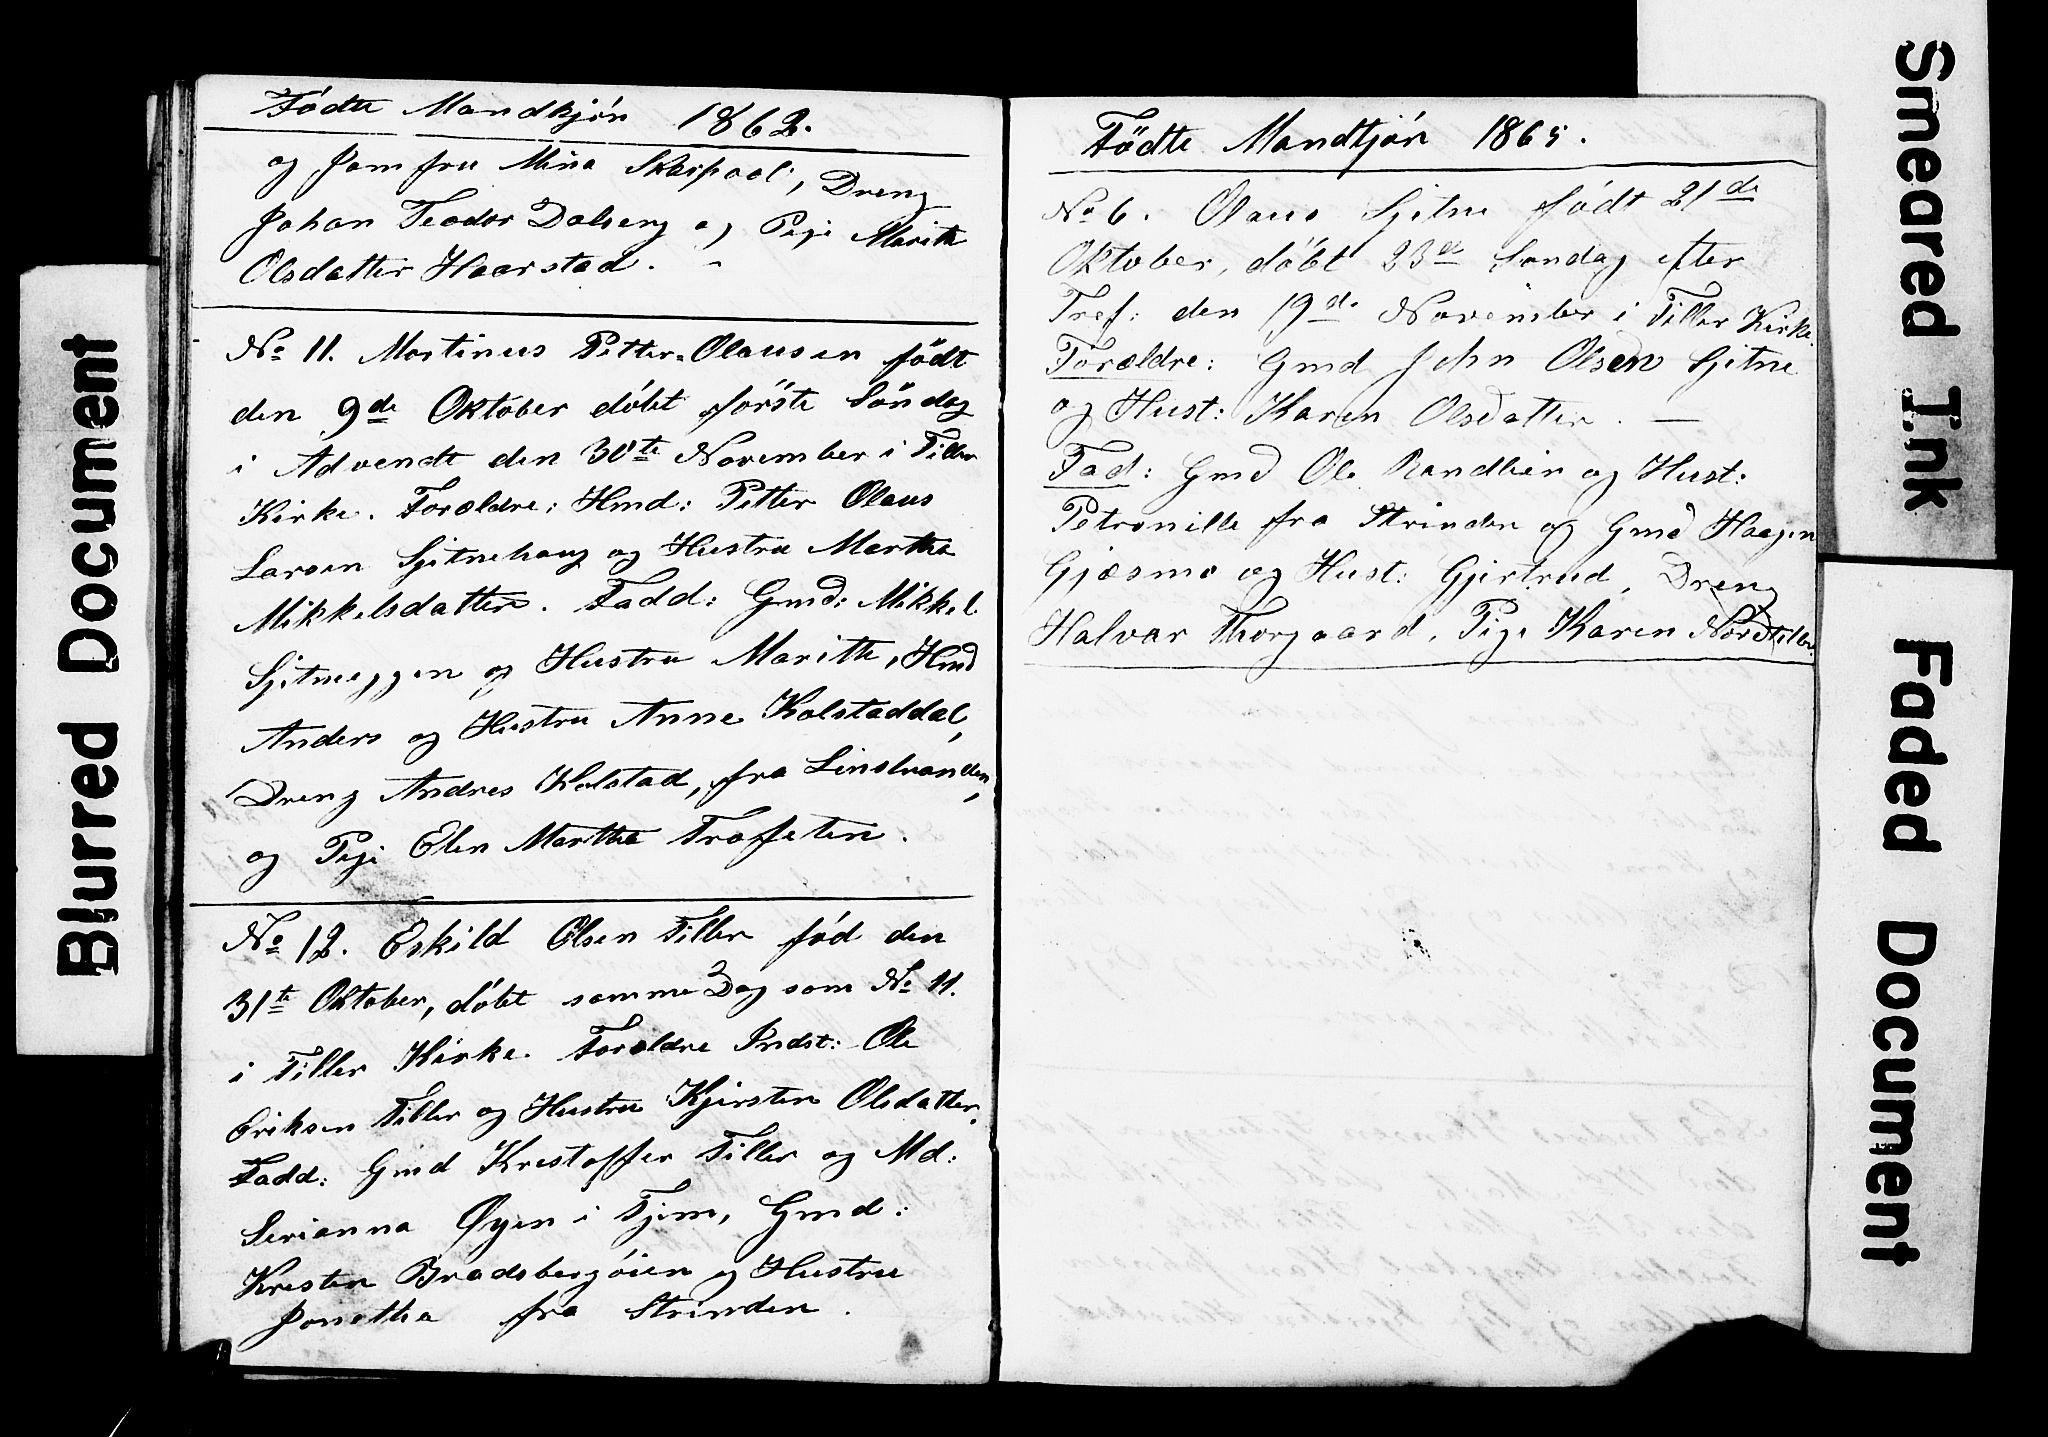 Blurred Document
Fødte Mandkjön 1862.
og Jomfru Mina Skarpool, Dreng
Johan Teodor Dalseng og Pige Marith
Olsdatter Haarstad.
No 11. Martinus Petter-Olausen født
den 9de Oktober döbt förste Söndag
i Advendt den 30te November i Tiller
Kirke. Forældre: Hmd: Petter Olaus
Larsen Sjetnehaug og Hustru Martha
Mikkelsdatter. Fadd: Gmd: Mikkel
Sjetneggen og Hustru Marith, Hmd
Anders og Hustru Anne Kolstaddal,
Dreng Andres Kolstad, fra Leinstranden,
og Pige Elen Martha
No 12. Eskild Olsen Tiller fød den
31te Oktober, döbt somme Dag som No 11.
i Tiller Kirke. Forældre Indst: Ole
Eriksen Tiller og Hustru Kjersten Olsdatter.
Fadd: Gmd Krestoffer Tiller og Md:
Serianna Øyen i Tjem, Gmd:
Kresten Bradsbergöien og Hustru
Jonetha fra Strinden.
Födte Mandkjön 1865.
No 6. Olaus Sjetne født 21de
Oktober, döbt 23de Söndag efter
Tref: den 19de November i Tiller Kirke.
Forældre: Gmd John Olsen Sjetne
og Hust: Karen Olsdatter. —
Fad: Gmd Ole Randlien og Hust:
Petronille fra Strinden og Gmd Haagen
Gjæsmo og Hust: Gjertrud, Dreng
Halvar Thorgaard, Pige Karen Nordtiller
Smeared Ink
Faded Document